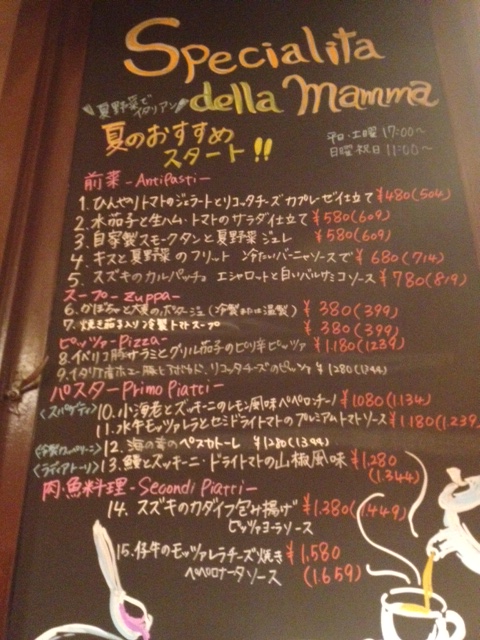 Specialita
della Mamma
夏野菜で
イタリアン
夏のおすすめ
スタート!!
平日・土曜 17:00〜
日曜祝日 11:00〜
前菜 -Antipasti-
1. ひんやりトマトのジェラートとリコッタチーズ カプレーゼ仕立て ¥480(504)
2. 水茄子と生ハム・トマトのサラダ仕立て ¥580(609)
3. 自家製スモークタンと夏野菜ジュレ ¥580(609)
4. キスと夏野菜のフリット 冷たいバーニャソースで ¥680(714)
5. スズキのカルパッチョ エシャロットと白いバルサミコソース ¥780(819)
スープ -Zuppa-
6. かぼちゃと大麦のポタージュ(冷製または温製) ¥380(399)
7. 焼き茄子入り冷製トマトスープ ¥380(399)
ピッツァ -Pizza-
8. イベリコ豚サラミとグリル茄子のピリ辛ピッツァ ¥1.180(1239)
9. イタリア産ホエー豚と リコッタチーズのピッツァ ¥1280(1344)
パスター Primo Piatti-
<スパゲティ> 10. 小海老とズッキーニのレモン風味ペペロンチーノ ¥1080(1.134)
11. 水牛モッツァレラとセミドライトマトのプレミアムトマトソース ¥1.180(1.239)
12. 海の幸のペスカトーレ ¥1280(1344)
<ラディアトーリ> 13. 鰻とズッキーニ・ドライトマトの山椒風味 ¥1,280
(1.344)
肉・魚料理 -Secondi Piatti-
14. スズキのカダイフ包み揚げ ¥1.380(1.449)
ピッツァヨーラソース
15. 仔牛のモッツァレラチーズ焼き ¥1,580
ペペロナータソース (1.659)